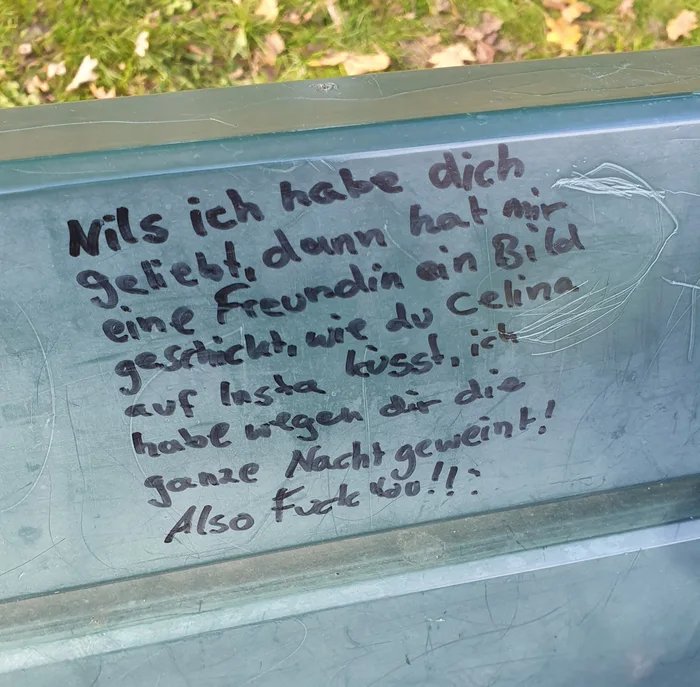 Nils ich habe dich
geliebt, dann hat mir
eine Freundin ein Bild
geschickt, wie du Celina
auf Insta küsst, ich
habe wegen dir die
ganze Nacht geweint!
Also Fuck You!!: